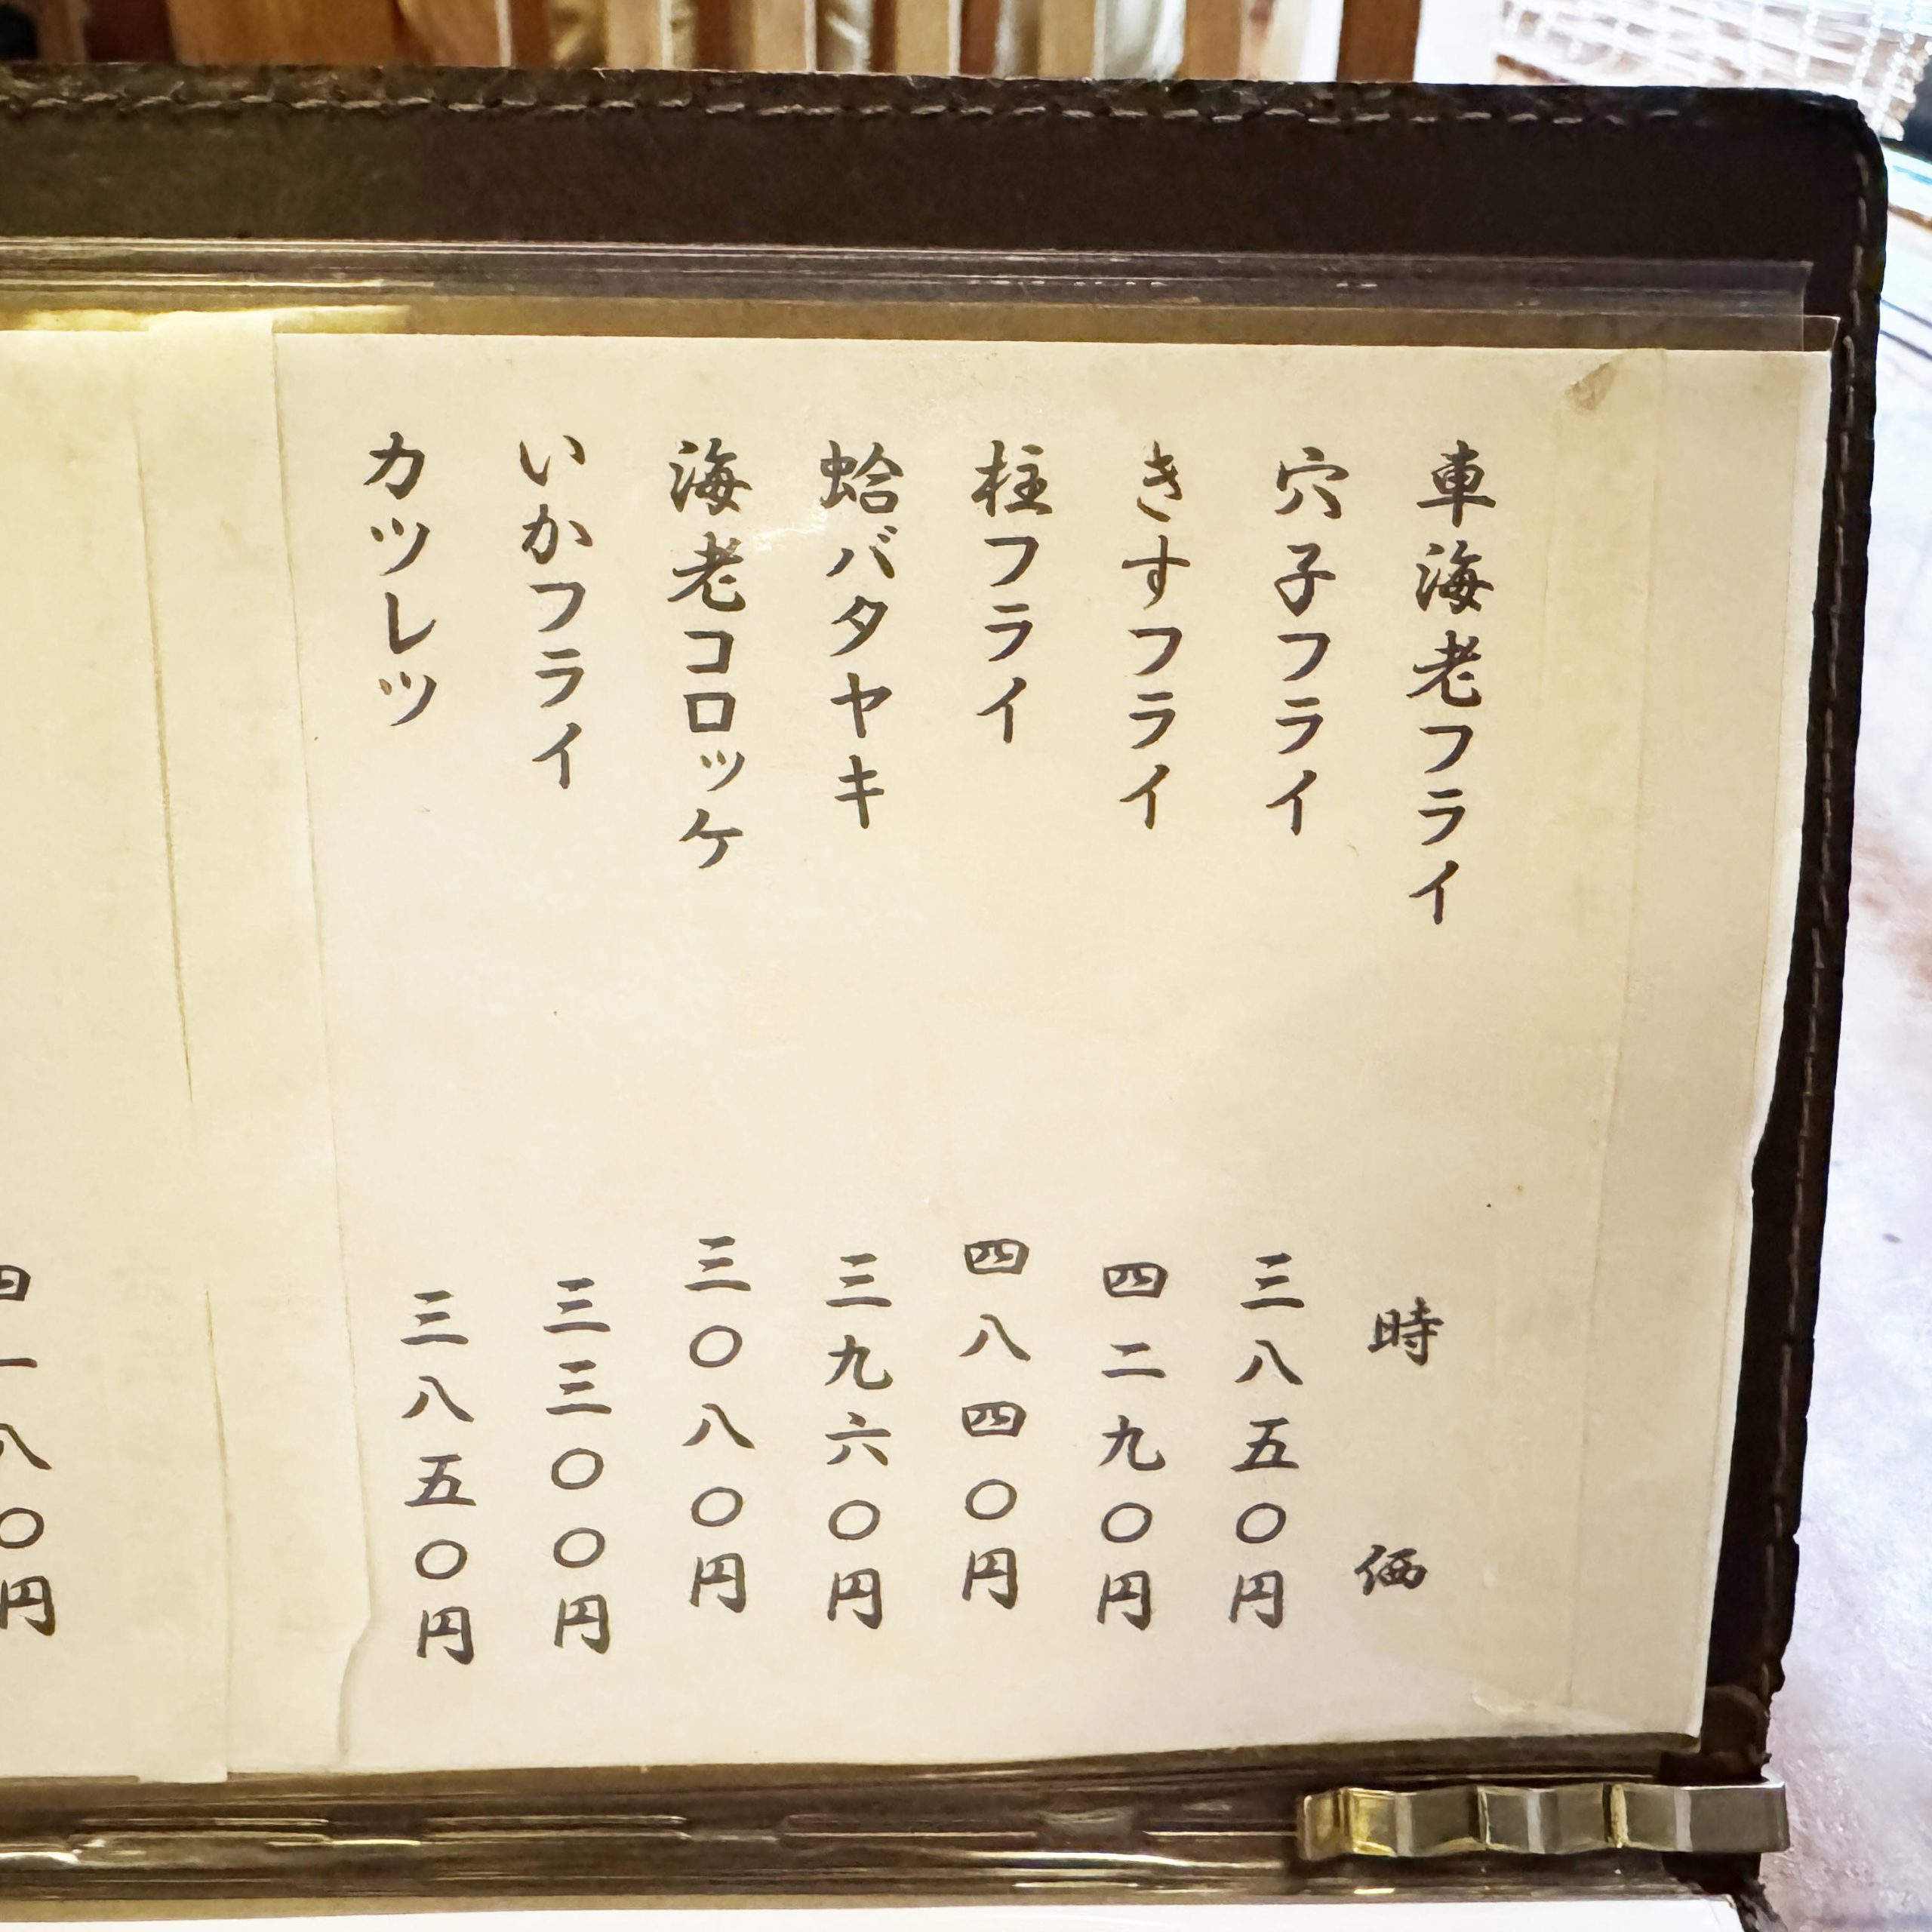 車海老フライ 時価
穴子フライ 三八五〇円
きすフライ 四二九〇円
柱フライ 四八四〇円
蛤バタヤキ 三九六〇円
海老コロッケ 三〇八〇円
いかフライ 三三〇〇円
カツレツ 三八五〇円
四一八〇円